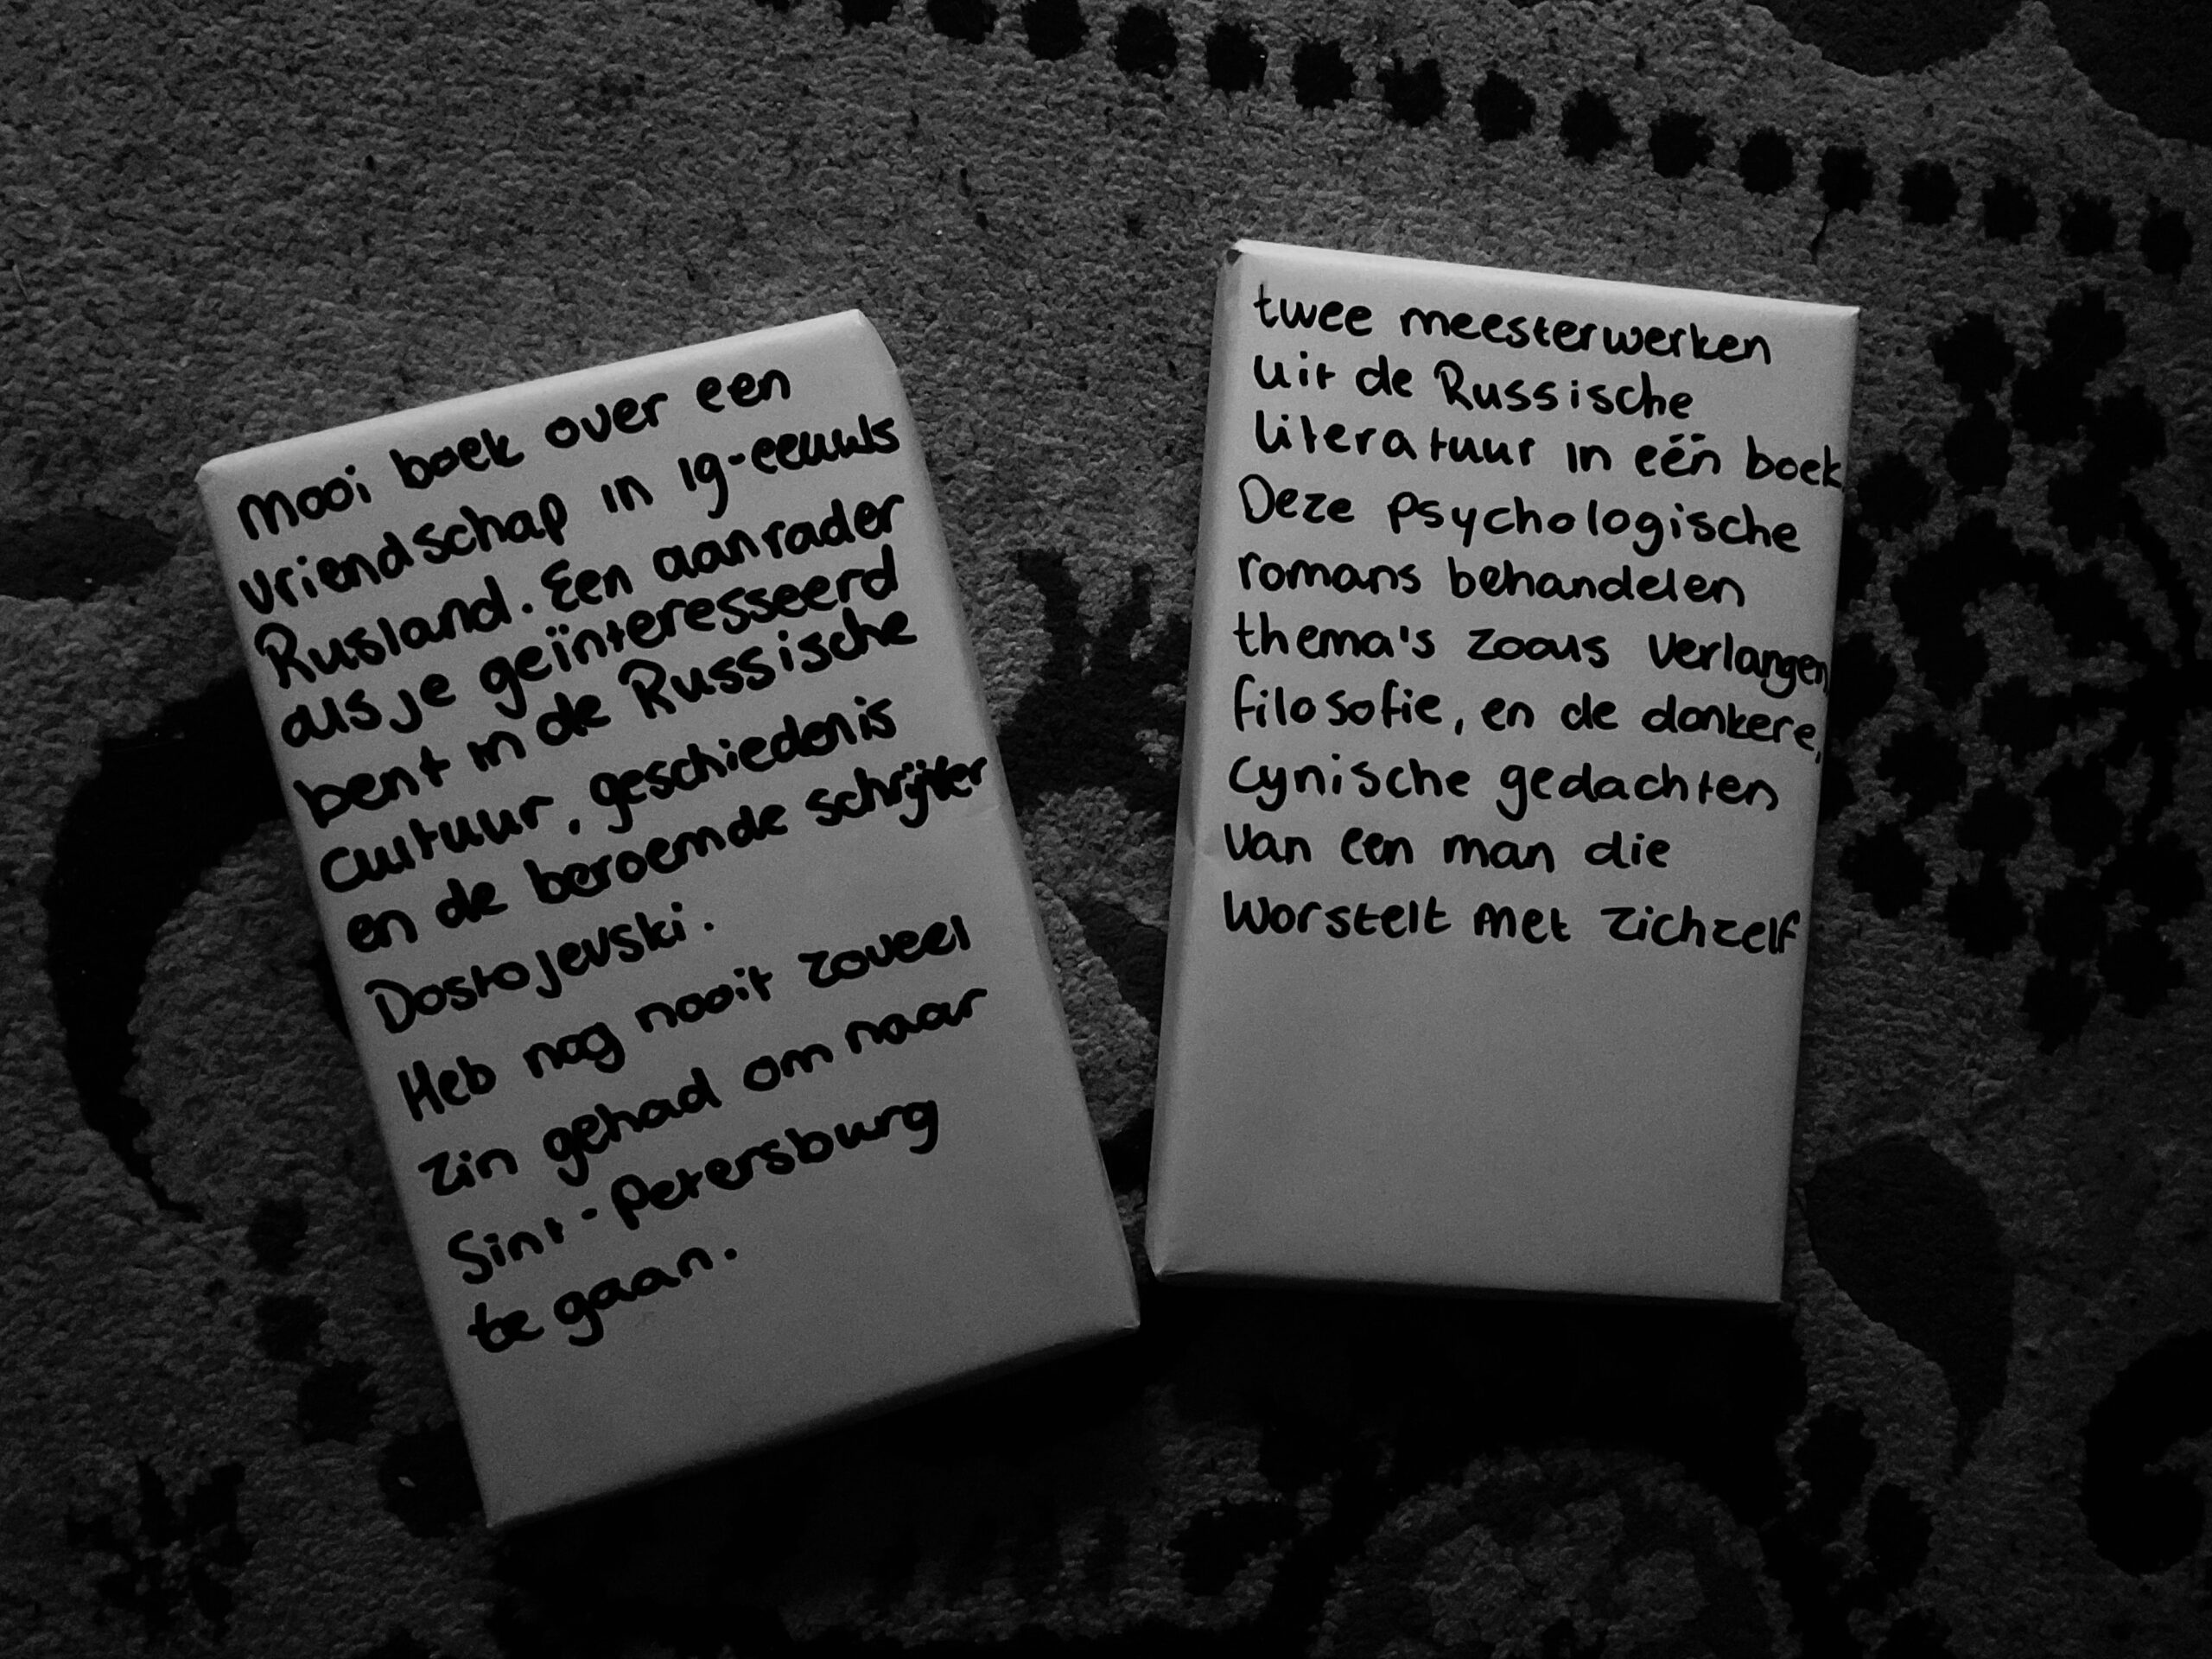 Mooi boek over een
vriendschap in 19-eeuws
Rusland. Een aanrader
als je geïnteresseerd
bent in de Russische
cultuur, geschiedenis
en de beroemde schrijver
Dostojevski.
Heb nog nooit zoveel
zin gehad om naar
Sint-Petersburg
te gaan.
twee meesterwerken
uit de Russische
literatuur in één boek
Deze psychologische
romans behandelen
thema's zoals verlangen,
filosofie, en de donkere,
cynische gedachten
van een man die
worstelt met zichzelf